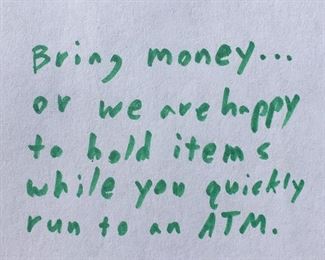 Bring money...
or we are happy
to hold items
while you quickly
run to an ATM.